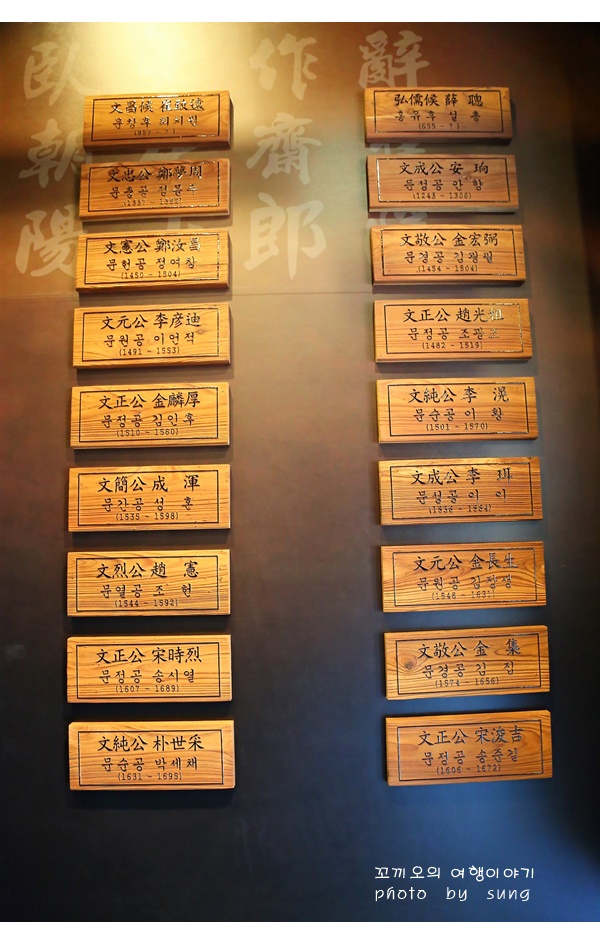 臥 作 辭
朝 齋
陽 郎
文昌侯 崔致遠
문창후 최치원
(857 - ? )
文忠公 鄭夢周
문충공 정몽주
(1337 - 1392)
文憲公 鄭汝昌
문헌공 정여창
(1450 - 1504)
文元公 李彦迪
문원공 이언적
(1491 - 1553)
文正公 金麟厚
문정공 김인후
(1510 - 1560)
文簡公 成 渾
문간공 성 혼
(1535 - 1598)
文烈公 趙 憲
문열공 조 헌
(1544 - 1592)
文正公 宋時烈
문정공 송시열
(1607 - 1689)
文純公 朴世采
문순공 박세채
(1631 - 1695)
弘儒侯 薛 聰
홍유후 설 총
(655 - ? )
文成公 安 珦
문성공 안 향
(1243 - 1306)
文敬公 金宏弼
문경공 김굉필
(1454 - 1504)
文正公 趙光祖
문정공 조광조
(1482 - 1519)
文純公 李 滉
문순공 이 황
(1501 - 1570)
文成公 李 珥
문성공 이 이
(1536 - 1584)
文元公 金長生
문원공 김장생
(1548 - 1631)
文敬公 金 集
문경공 김 집
(1574 - 1656)
文正公 宋浚吉
문정공 송준길
(1606 - 1672)
꼬끼오의 여행이야기
photo by sung